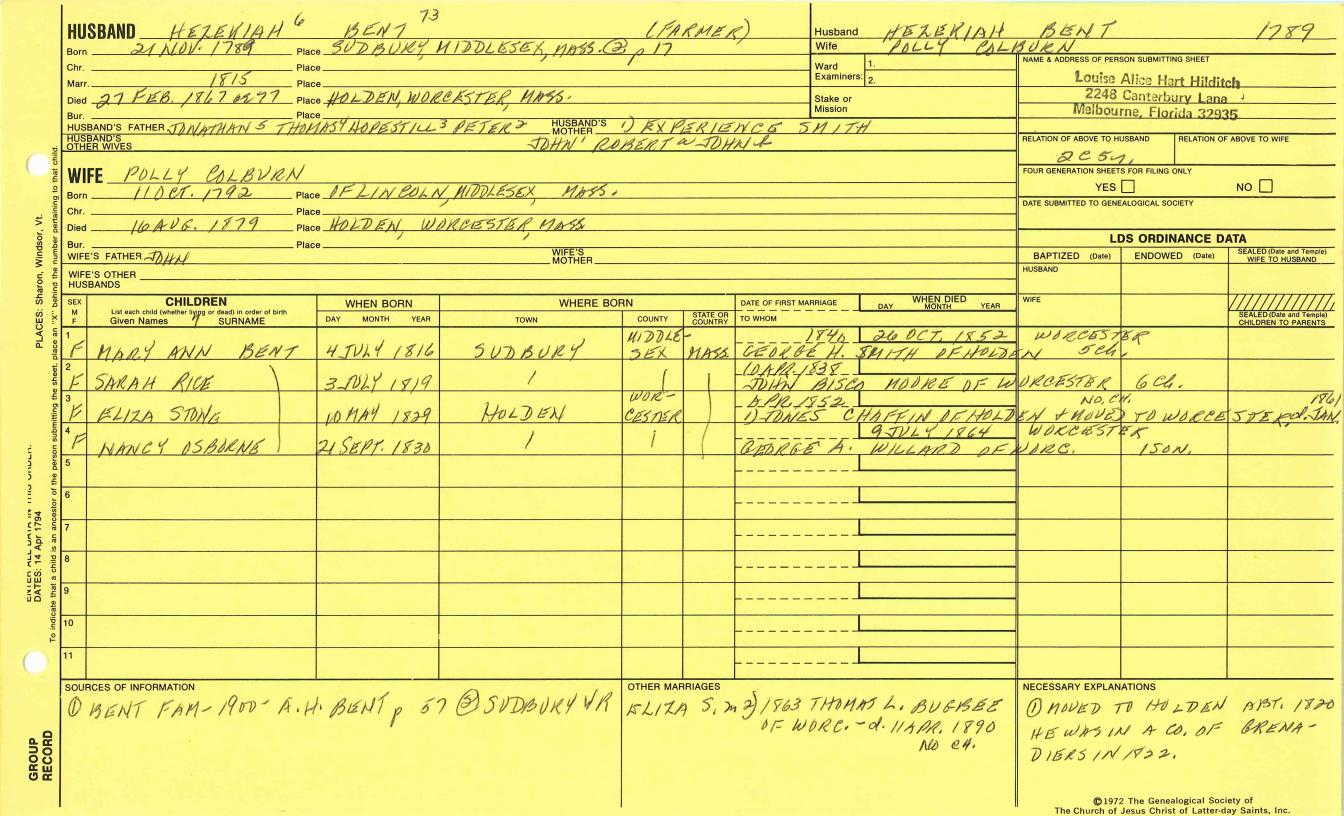 HUSBAND HEZEKIAH 6 BENT 73 (FARMER)
Born 21 NOV. 1789 Place SUDBURY, MIDDLESEX, MASS. ② p 17
Chr. Place
Marr. 1815 Place
Died 27 FEB. 1867 or 77 Place HOLDEN, WORCESTER, MASS.
Bur. Place
HUSBAND'S FATHER JONATHAN 5 THOMAS 4 HOPESTILL 3 PETER 2 HUSBAND'S MOTHER 1) EXPERIENCE SMITH
HUSBAND'S OTHER WIVES JOHN 1 ROBERT a JOHN b
Husband HEZEKIAH BENT 1789
Wife POLLY COLBURN
Ward Examiners: 1.
2.
Stake or Mission
NAME & ADDRESS OF PERSON SUBMITTING SHEET
Louise Alice Hart Hilditch
2248 Canterbury Lane
Melbourne, Florida 32935
RELATION OF ABOVE TO HUSBAND RELATION OF ABOVE TO WIFE
2C 5r,
FOUR GENERATION SHEETS FOR FILING ONLY
YES NO
DATE SUBMITTED TO GENEALOGICAL SOCIETY
WIFE POLLY COLBURN
Born 11 OCT. 1792 Place OF LINCOLN, MIDDLESEX, MASS.
Chr. Place
Died 16 AUG. 1879 Place HOLDEN, WORCESTER, MASS
Bur. Place
WIFE'S FATHER JOHN WIFE'S MOTHER
WIFE'S OTHER HUSBANDS
LDS ORDINANCE DATA
BAPTIZED (Date) ENDOWED (Date) SEALED (Date and Temple) WIFE TO HUSBAND
HUSBAND
WIFE
SEALED (Date and Temple) CHILDREN TO PARENTS
SEX M F
CHILDREN
List each child (whether living or dead) in order of birth
Given Names 7 SURNAME
WHEN BORN
DAY MONTH YEAR
WHERE BORN
TOWN COUNTY STATE OR COUNTRY
DATE OF FIRST MARRIAGE
TO WHOM
WHEN DIED
DAY MONTH YEAR
1 MIDDLE- 1840 26 OCT. 1852 WORCESTER
F MARY ANN BENT 4 JULY 1816 SUDBURY SEX MASS. GEORGE H. SMITH OF HOLDEN 5 ch.
2 10 APR. 1838
F SARAH RICE 3 JULY 1819 JOHN BISCO MOORE OF WORCESTER 6 Ch.
3 WOR- APR. 1852 NO. CH. 1861
F ELIZA STONE 10 MAY 1829 HOLDEN CESTER 1) JONES CHAFFIN OF HOLDEN + MOVED TO WORCESTER, d. JAN.
4 9 JULY 1864 WORCESTER
F NANCY OSBORNE 21 SEPT. 1830 GEORGE A. WILLARD OF WORC. 1 SON.
5
6
7
8
9
10
11
SOURCES OF INFORMATION
① BENT FAM- 1900- A.H. BENT p 57 ② SUDBURY VR
OTHER MARRIAGES
ELIZA S. m 2) 1863 THOMAS L. BUGBEE
OF WORC. - d. 11 APR. 1890
NO CH.
NECESSARY EXPLANATIONS
① MOVED TO HOLDEN ABT. 1820
HE WAS IN A CO. OF GRENA-
DIERS IN 1822.
©1972 The Genealogical Society of
The Church of Jesus Christ of Latter-day Saints, Inc.
GROUP RECORD
ENTER ALL DATA IN THIS ORDER:
DATES: 14 Apr 1794 PLACES: Sharon, Windsor, Vt.
To indicate that a child is an ancestor of the person submitting the sheet, place an "X" behind the number pertaining to that child.